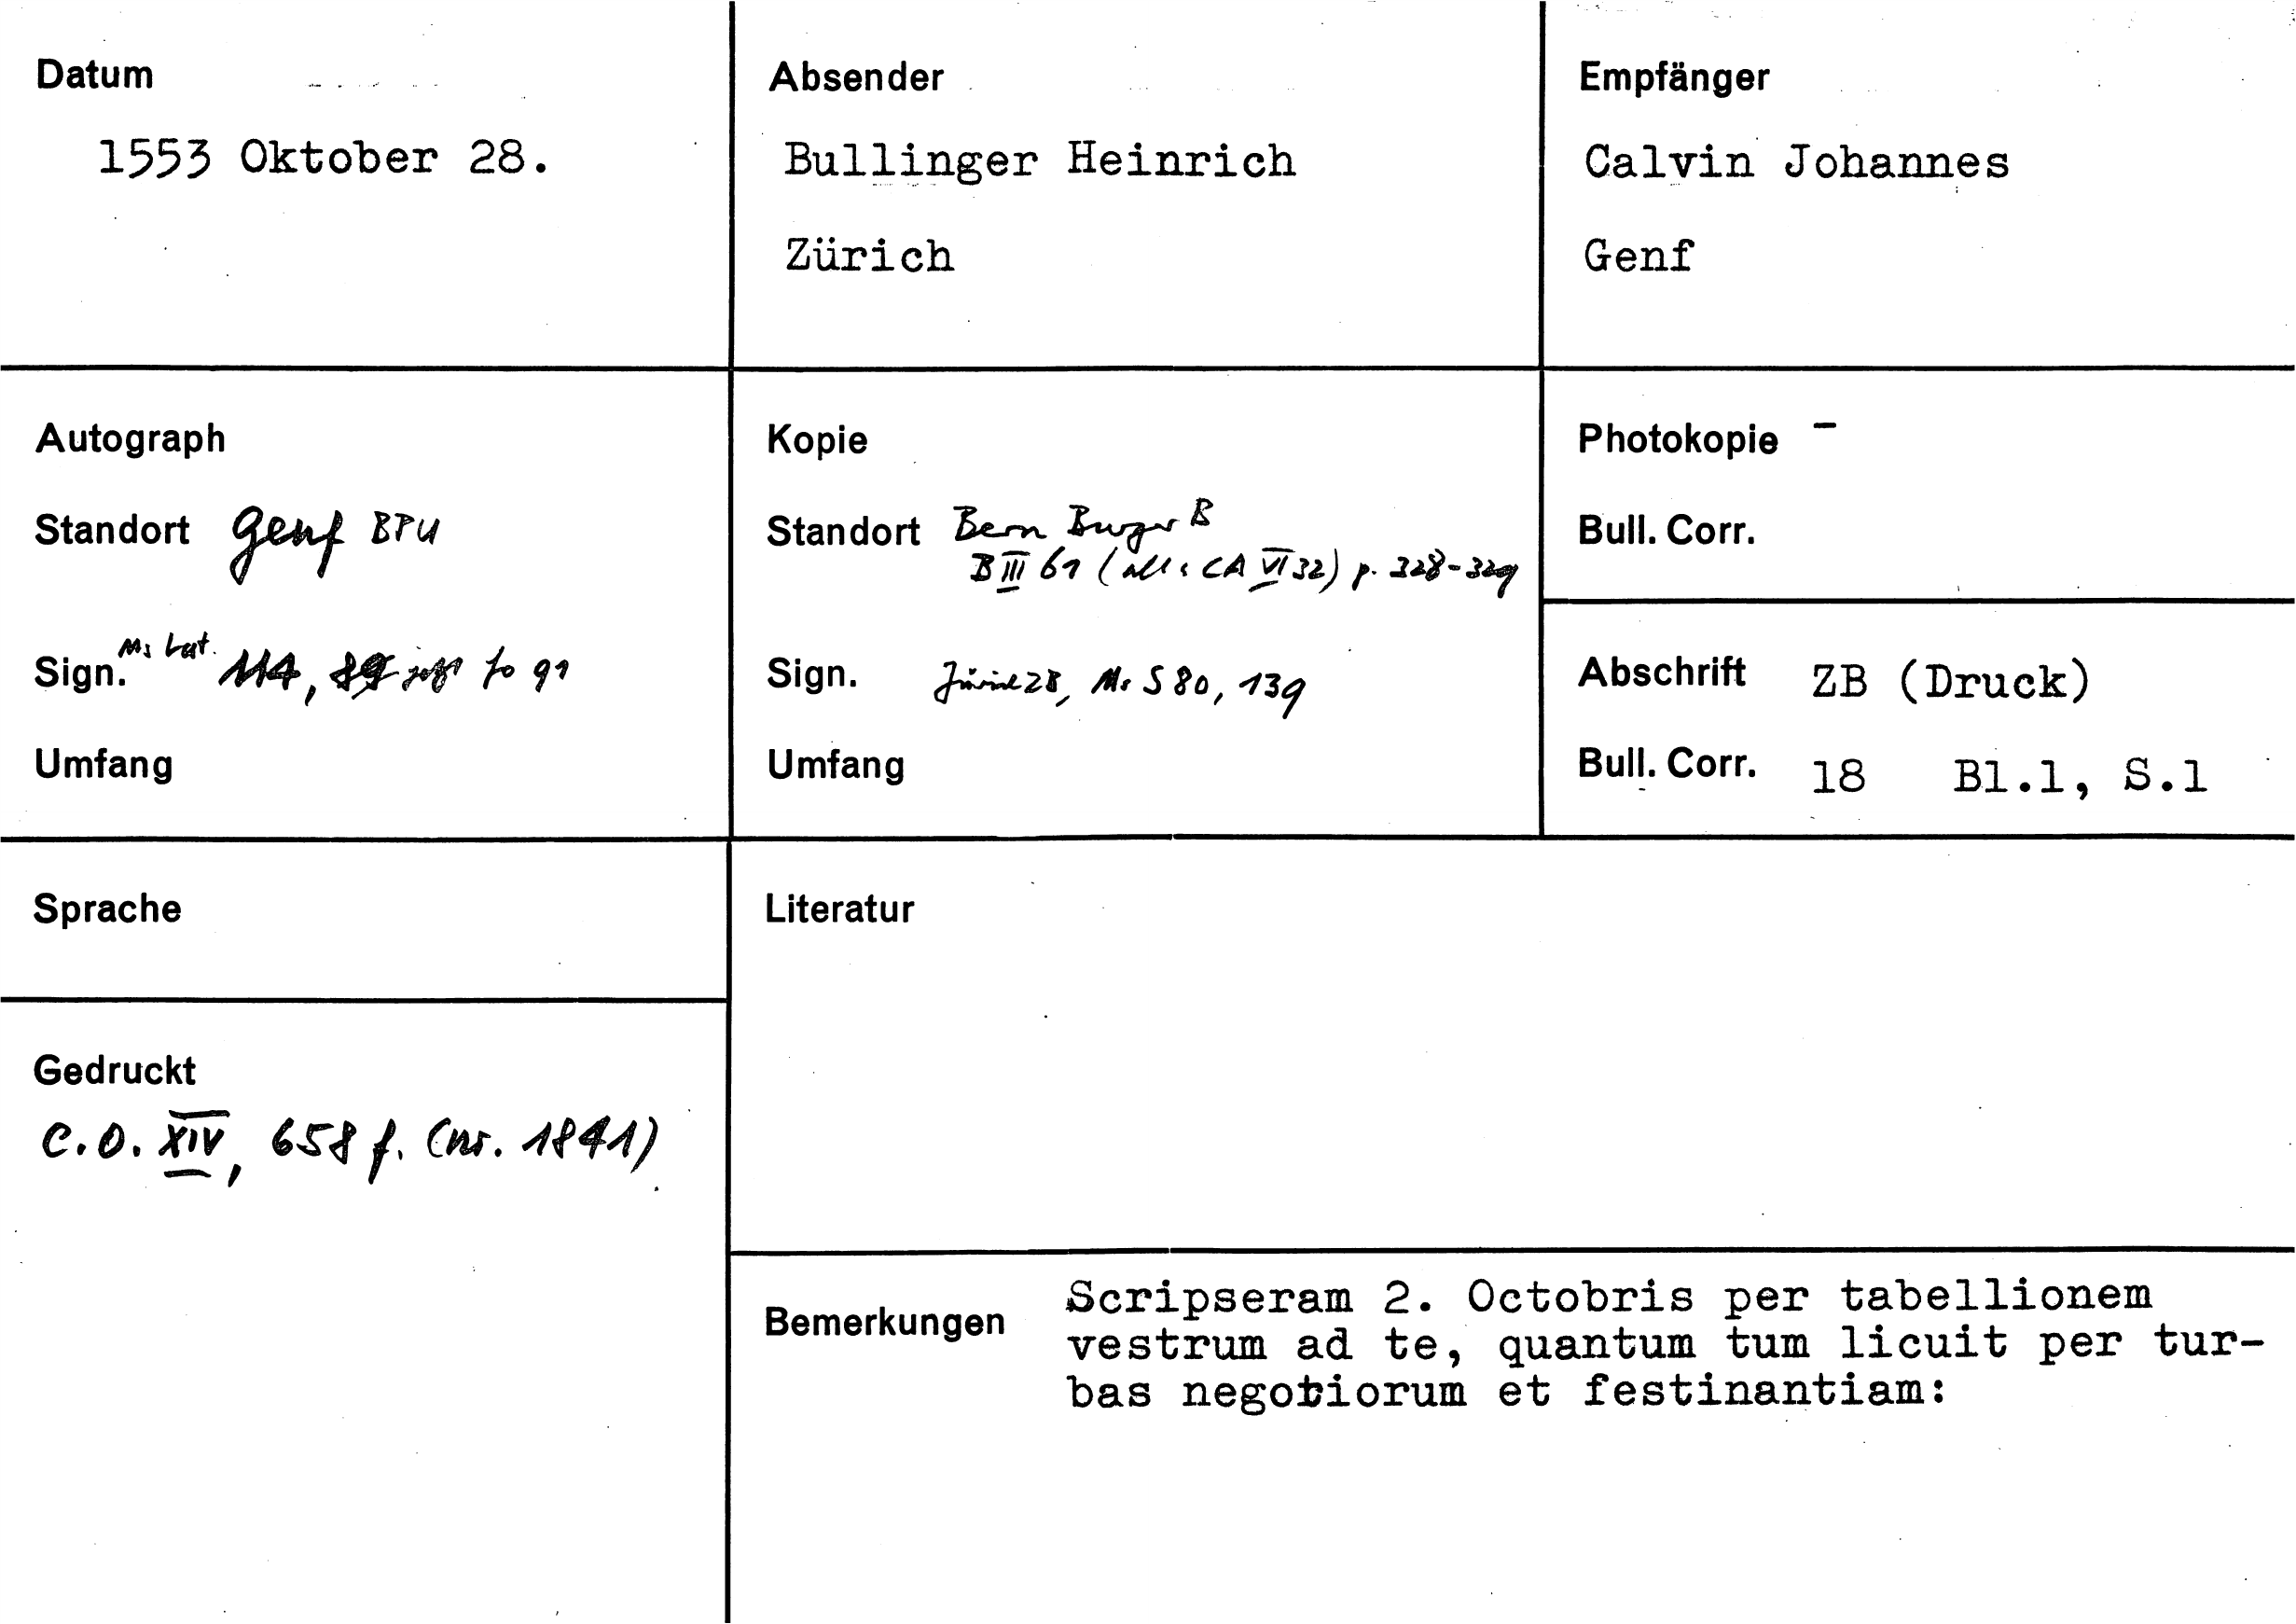 Datum
1553 Oktober 28.
Absender
Bullinger Heinrich
Zürich
Empfänger
Calvin Johannes
Genf
Autograph
Standort Genf BPU
Sign. Ms Lat. 114, fo 91
Umfang
Kopie
Standort Bern Burger B
B III 61 ( CA VI 32) p. 328-329
Sign. Zürich ZB, Ms S 80, 139
Umfang
Photokopie -
Bull. Corr.
Abschrift ZB (Druck)
Bull. Corr. 18 Bl.1, S.1
Sprache
Gedruckt
C.O. XIV, 658 f. (nr. 1841)
Literatur
Bemerkungen Scripseram 2. Octobris per tabellionem
vestrum ad te, quantum tum licuit per tur-
bas negotiorum et festinantiam: